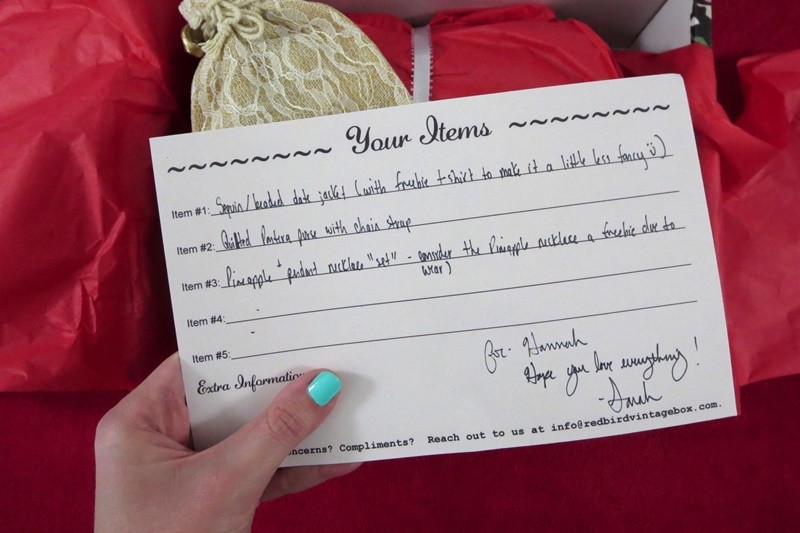 ~~~~~~~~ Your Items ~~~~~~~~
Item #1: Sequin/beaded date jacket (with freebie t-shirt to make it a little less fancy :))
Item #2: Quilted purse with chain strap
Item #3: Pineapple + pendant necklace "set" - consider the Pineapple necklace a freebie due to
wear)
Item #4: -
Item #5: -
Extra Informatio
For- Hannah
Hope you love everything!
-Sarah
ncerns? Compliments? Reach out to us at info@redbirdvintagebox.com.